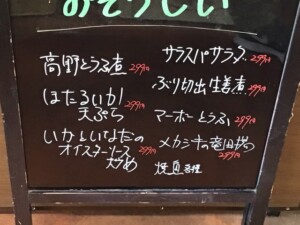 おそうしい
高野とうふ煮 299円
ほたるいか
天ぷら 299円
いかといえだの
オイスターソース 299円
炒め
サラスパサラダ 299円
ぶり切出生姜煮 299円
マーボーとうふ 299円
メカジキの竜田揚 299円
焼魚 各種